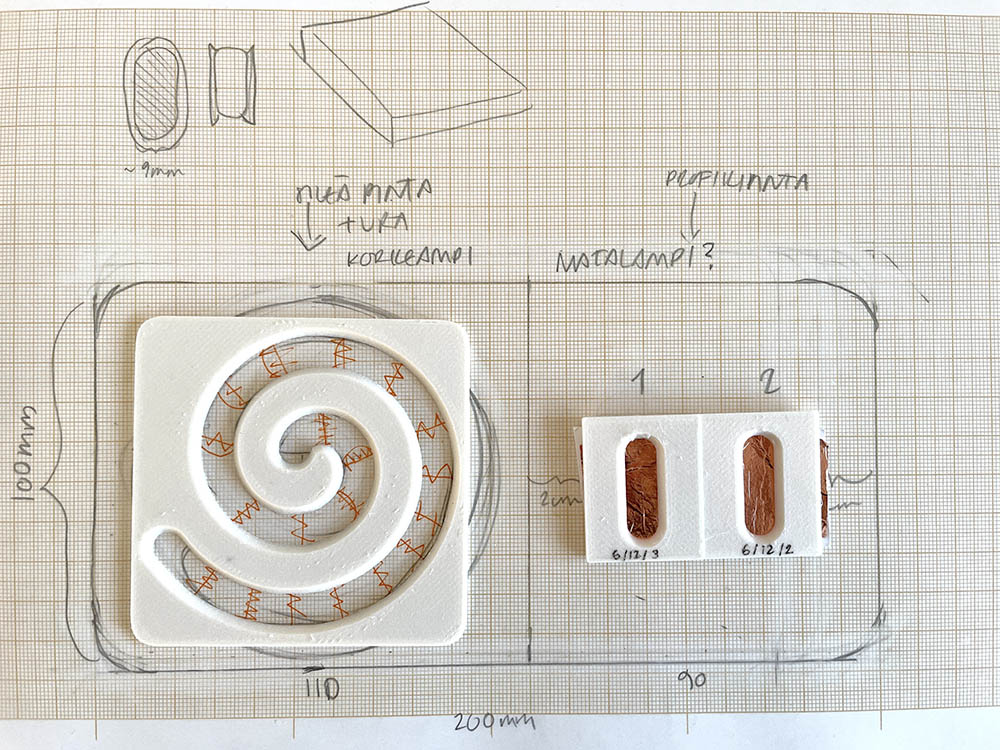 ~9mm
PINTA
+ URA
KORKEAMPI
PROFIILIPINTA
MATALAMPI?
100mm
1
2
2cm
6/12/3
6/12/2
110
90
200mm